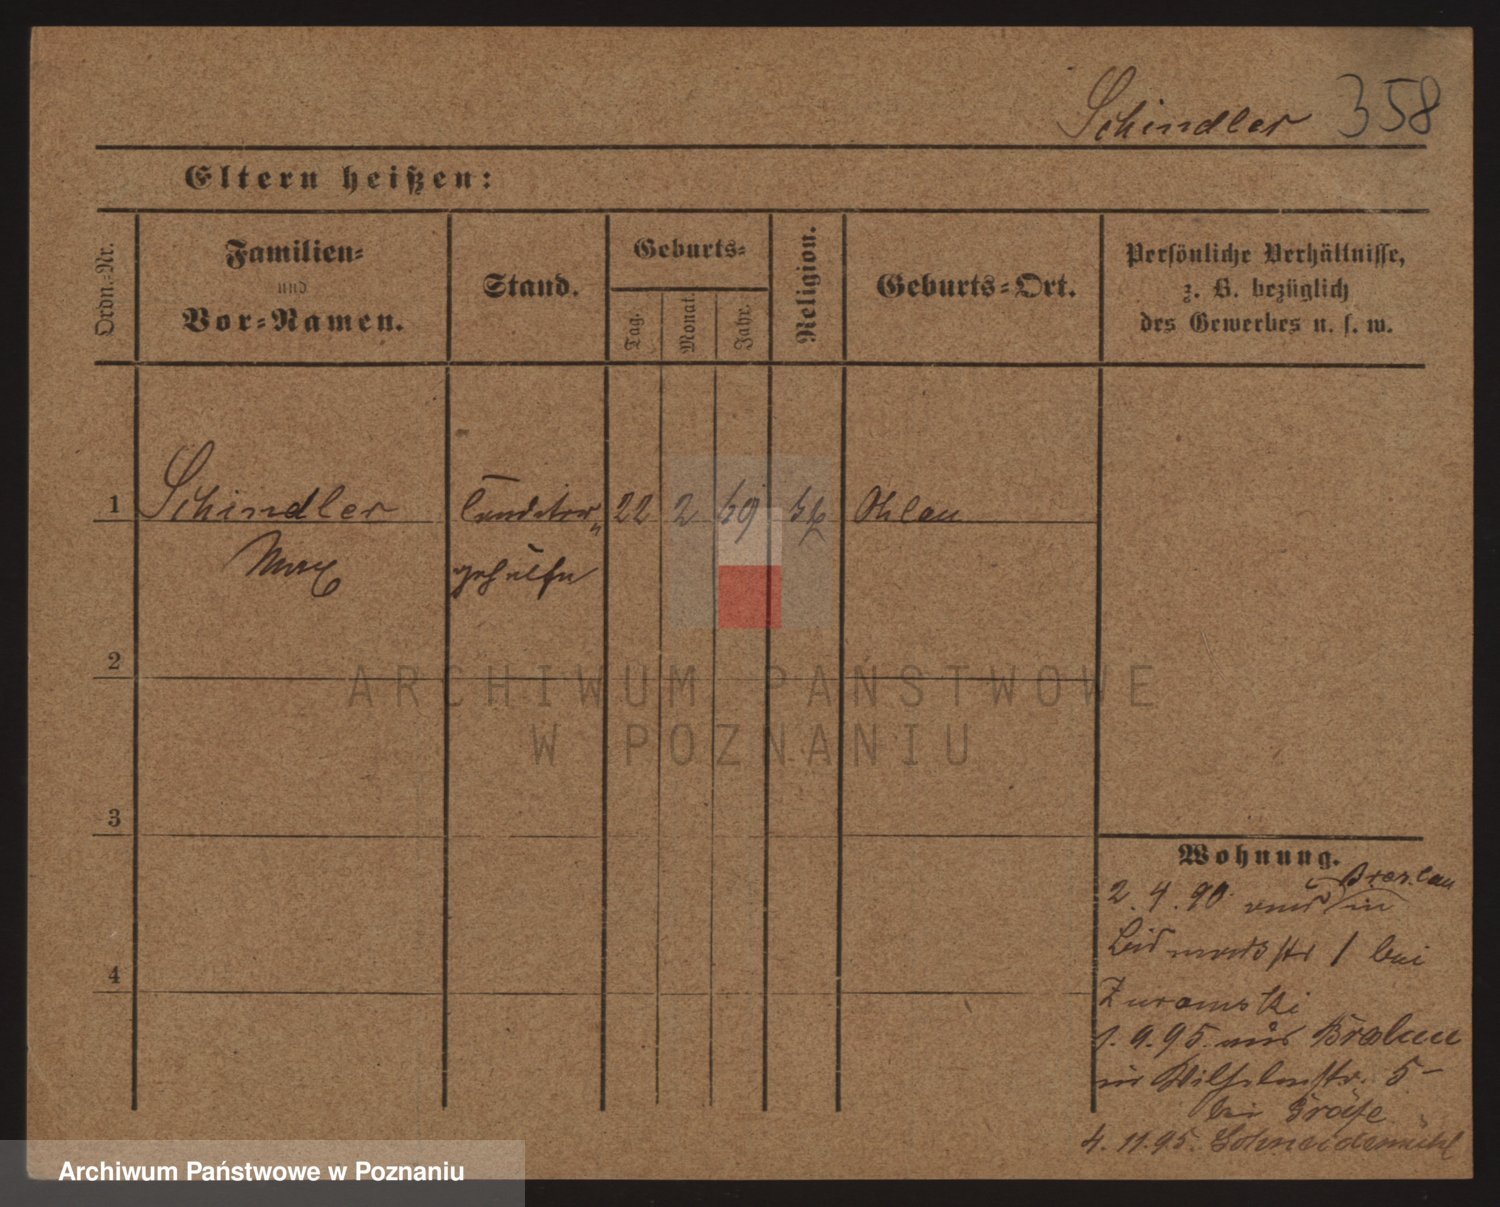 Schindler 358
Eltern heißen:
Ordn.-Nr.
Familien-
und
Vor-Namen.
Stand.
Geburts-
Tag.
Monat.
Jahr.
Religion.
Geburts-Ort.
Persönliche Verhältnisse,
z. B. bezüglich
des Gewerbes u. s. w.
1 Schindler 22 2 Ohlau
Max gehülfe
2
ARCHIWUM PAŃSTWOWE
W POZNANIU
3
4
Wohnung.
Breslau
2. 4. 90. in
1 bei
1. 9. 95. aus
in Wilhelmstr. 5
bei
4. 11. 95. Schneidemühl
Archiwum Państwowe w Poznaniu